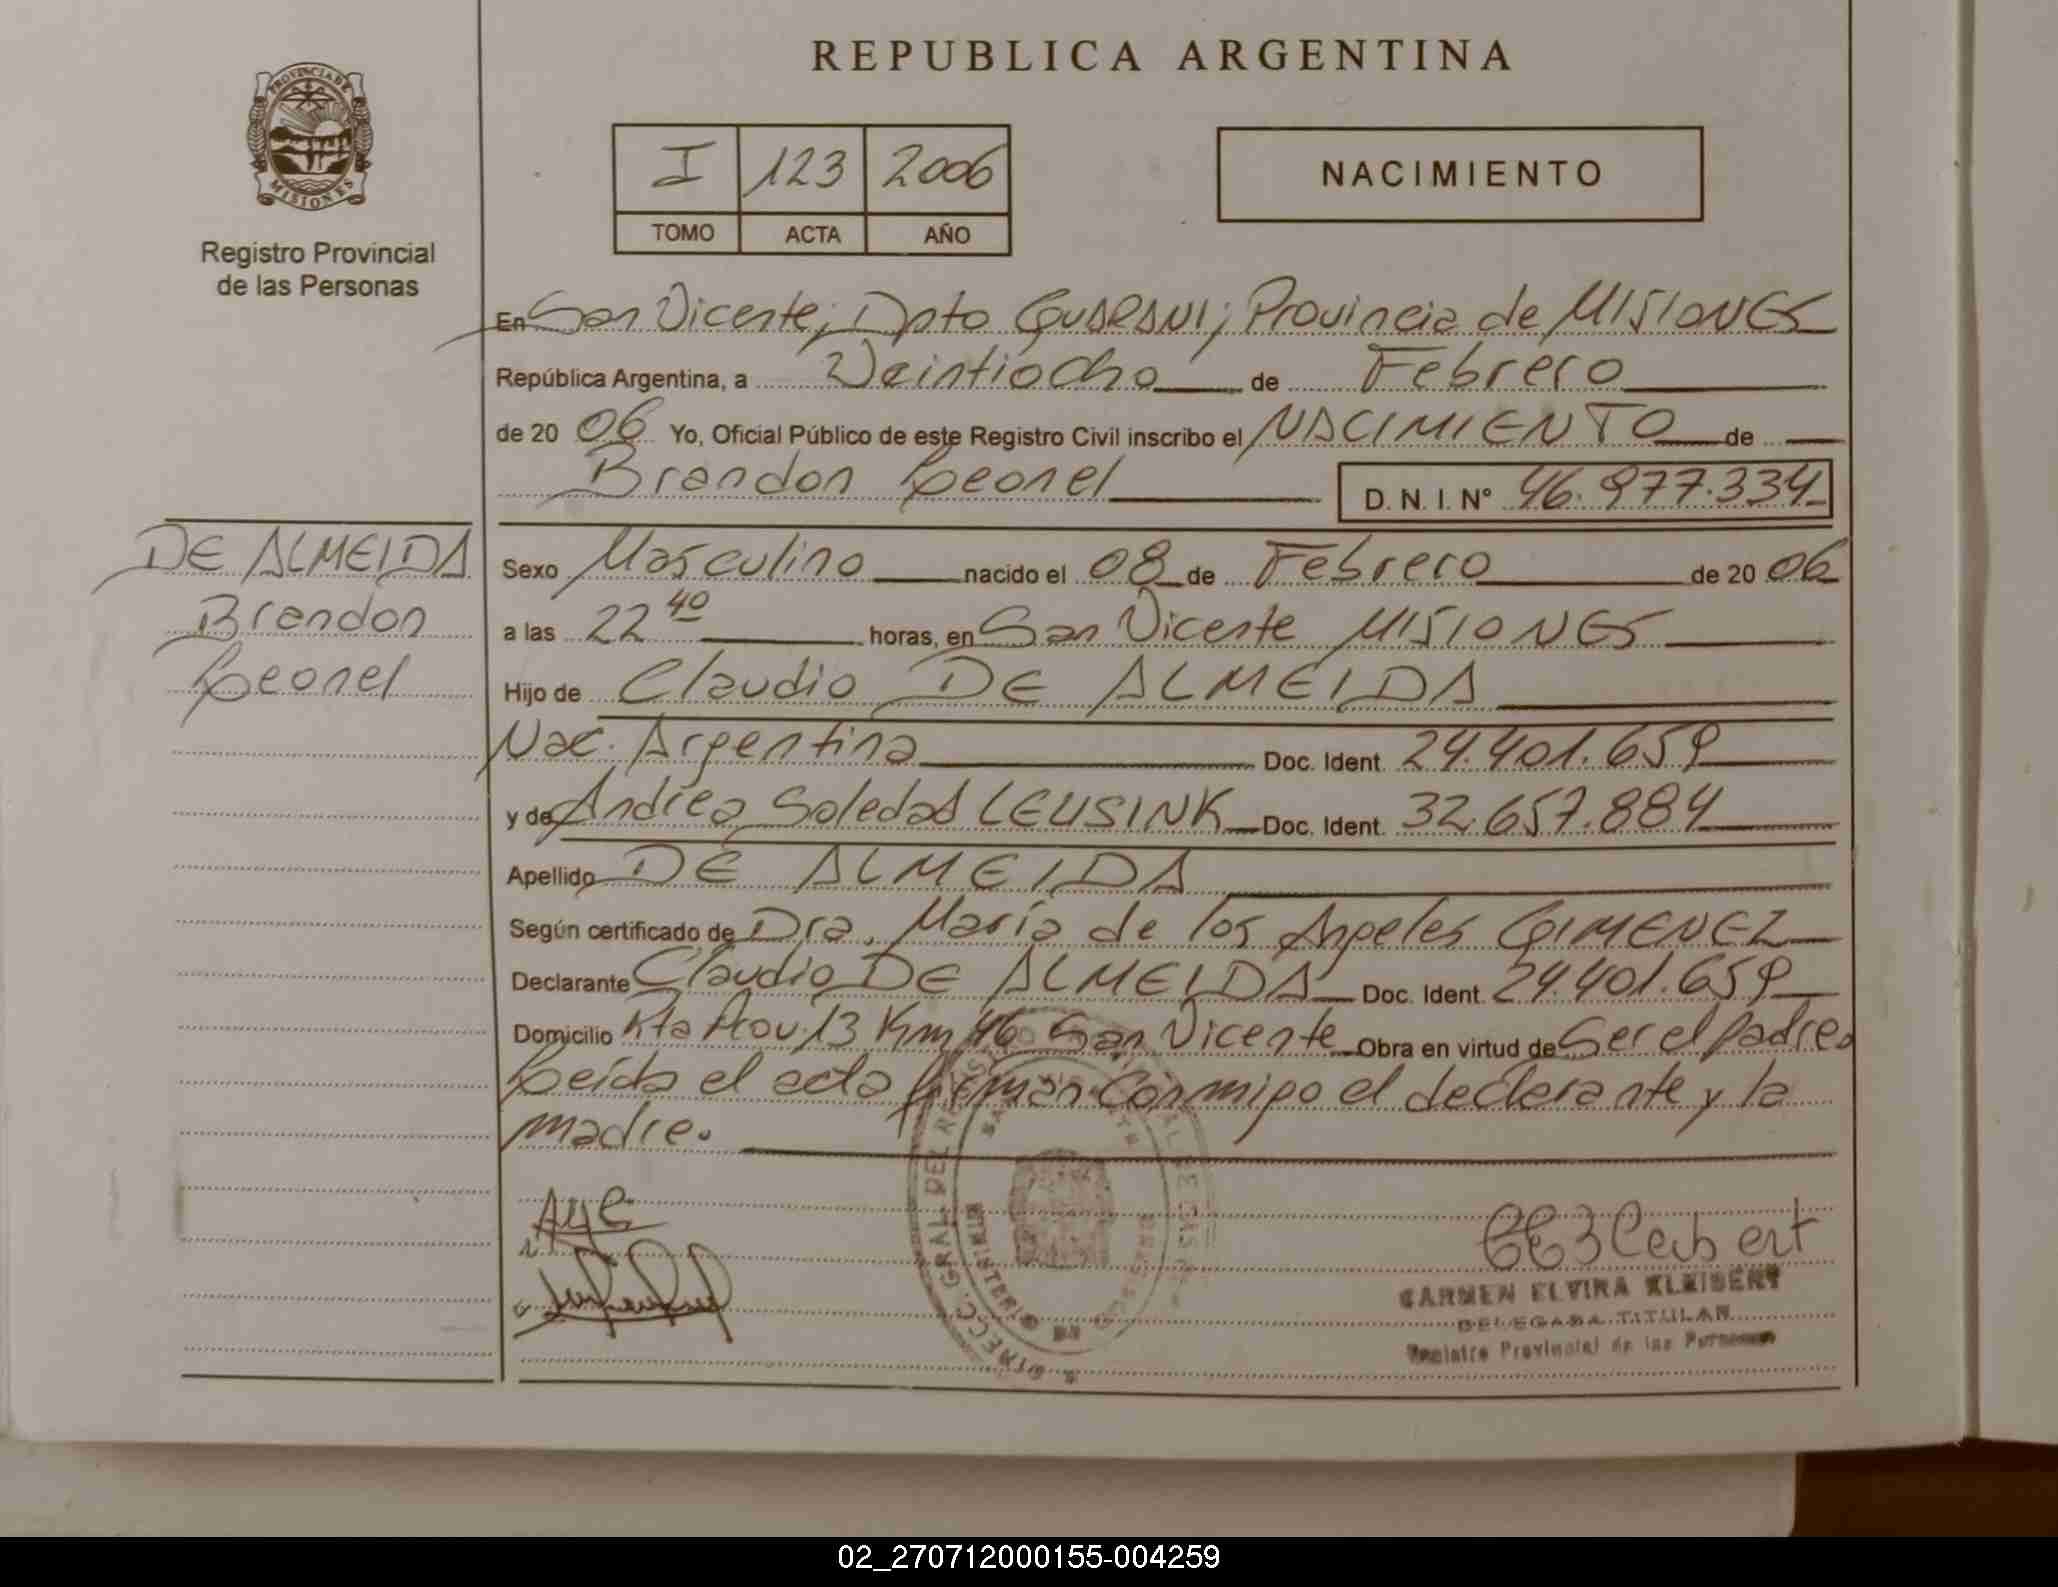 REPUBLICA ARGENTINA
PROVINCIA DE
MISIONES
Registro Provincial
de las Personas
I 123 2006
TOMO ACTA AÑO
NACIMIENTO
En San Vicente, Dpto GUARANI; Provincia de MISIONES
República Argentina, a Veintiocho de Febrero
de 20 06 Yo, Oficial Público de este Registro Civil inscribo el NACIMIENTO de
Brandon Leonel D.N.I. N° 46.977.334
DE ALMEIDA
Brandon
Leonel
Sexo Masculino nacido el 08 de Febrero de 20 06
a las 22 40 horas, en San Vicente MISIONES
Hijo de Claudio DE ALMEIDA
Nac. Argentina Doc. Ident. 24.401.659
y de Andrea Soledad LEUSINK Doc. Ident. 32.657.884
Apellido DE ALMEIDA
Según certificado de Dra. María de los Angeles GIMENEZ
Declarante Claudio DE ALMEIDA Doc. Ident. 24.401.659
Domicilio Rta Prov. 13 Km 46 San Vicente Obra en virtud de Ser el padre.
Leída el acta firman Conmigo el declarante y la
madre.
CARMEN ELVIRA KLEIBERT
DELEGADA TITULAR
Registro Provincial de las Personas
02_270712000155-004259